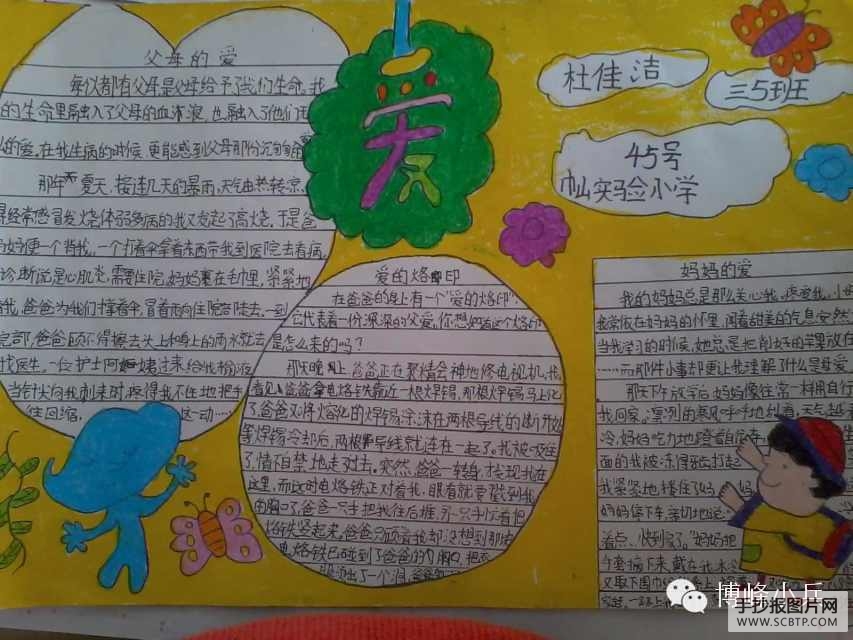 父母的爱
每仪都有父母,是父母给予了我们生命,我
的生命里融入了父母的血沐浪,也融入了他们无
的爱。在我生病的时候,更能感到父母那份沉甸甸
那年夏天,接连几天的暴雨,天气由热转凉,
经常感冒发烧体弱多病的我又发起了高烧。于是爸
妈便一个背我,一个打着伞拿着东西带我到医院去看病,
诊断说是心肌炎,需要住院,妈妈裹在毛巾里,紧紧地
我,爸爸为我们撑着伞,冒着雨向住院部赶去。一到
院部,爸爸顾不得擦去头上和身上的雨水就去
找医生。一位护士阿姨过来给我
当针尖向我刺来时,疼得我不住地把手
往回缩,这一动……
爱
杜佳洁
三5班
45号
实验小学
爱的烙印
在爸爸的身上有一个"爱的烙印",
它代表着一份深深的父爱,你想知道这个烙印
是怎么来的吗?
那天晚上,爸爸正在聚精会神地修电视机,我
看见爸爸拿电烙铁靠近一根焊锡,那根焊锡马上化
了,爸爸又将熔化的焊锡涂沫在两根导线的断开处
等焊锡冷却后,两根导线就连在一起了。我被吸住
了,情不禁地走过去。突然,爸爸一转身才发现我在
这里,而这时电烙铁正对着我,眼看就要戳到我
的胸口了,爸爸一只手把我往后推,另一只手忙着把
烙铁竖起来,爸爸只顾着我却没想到那
电烙铁已碰到了爸爸的胸口,把衣
服烫出了一个洞,
妈妈的爱
我的妈妈总是那么关心我、疼爱我,小
我常依在妈妈的怀里,闻着甜美的气息安然
当我学习的时候,她总是把削好的苹果放在
……而那件小事却更让我理解了什么是母爱
那天下午放学后,妈妈像往常一样用自行
我回家。凛冽的寒风呼呼地刮着,天气越
冷,妈妈吃力地蹬着自行车
面的我被冻得牙齿打起
我紧紧地搂住了妈
妈妈停下车,亲切地说:
着点,快到了。"妈妈把
手套摘下来,戴在我
又取下围巾
博峰小兵
手抄报图片网
WWW.SCBTP.COM